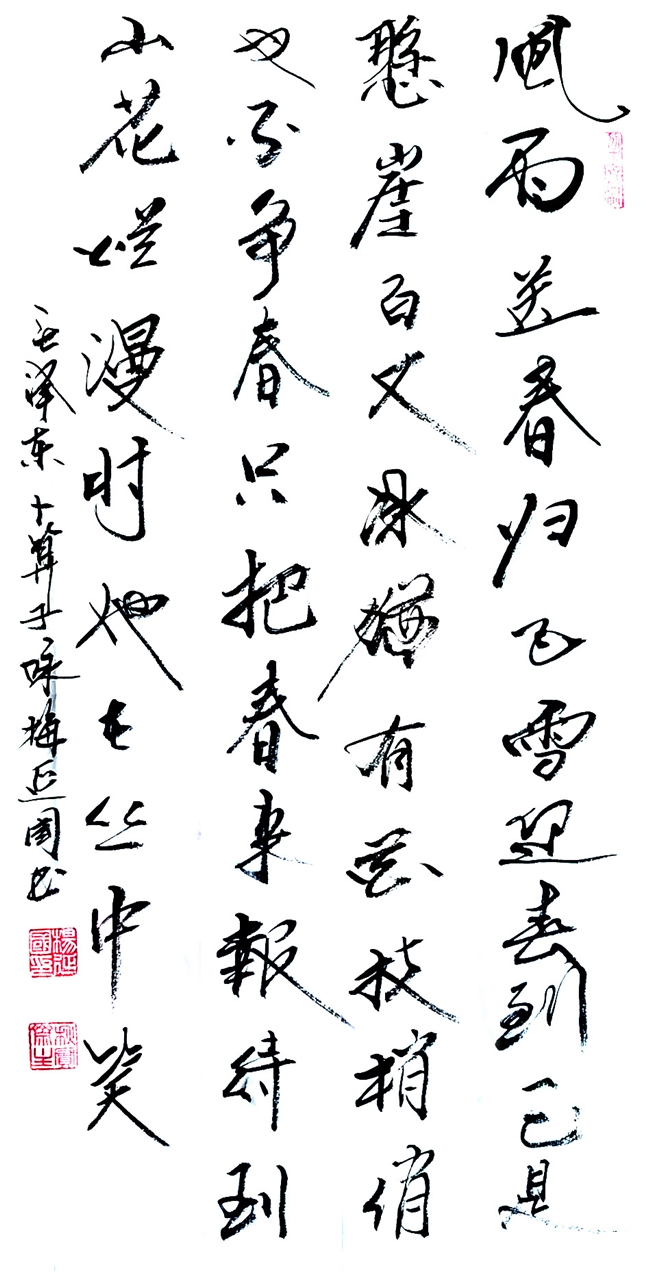 風雨送春归飞雪迎春到已是
懸崖百丈冰猶有花枝梢俏
也不争春只把春来報待到
山花烂漫时她在丛中笑
毛泽东卜算子咏梅延国书
楊延國印